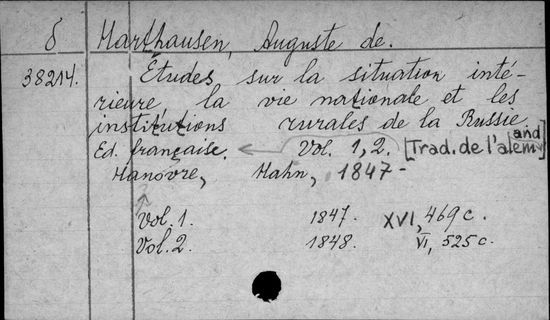 δ Harthausen, Auguste de.
38214. Études sur la situation inté-
rieure, la vie nationale et les
institutions rurales de la Russie
Ed. française. Vol. 1, 2. [Trad. de l'allemand]
Hanovre, Hahn, 1847-
Vol. 1. 1847. XVI, 469 c.
Vol. 2. 1848. VI, 525 c.